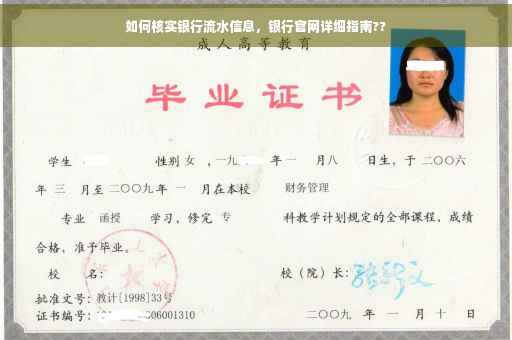 如何核实银行流水信息，银行官网详细指南??
成人高等教育
毕业证书
学生 性别 女 ，一九 年 一 月 八 日生，于 二〇〇六
年 三 月至 二〇〇九年 一 月在本校 财务管理
专业 函授 学习，修完 专 科教学计划规定的全部课程，成绩
合格，准予毕业。
校 名： 校（院）长：
批准文号：教计[1998]33号
证书编号： 06001310 二〇〇九 年 一 月 十 日